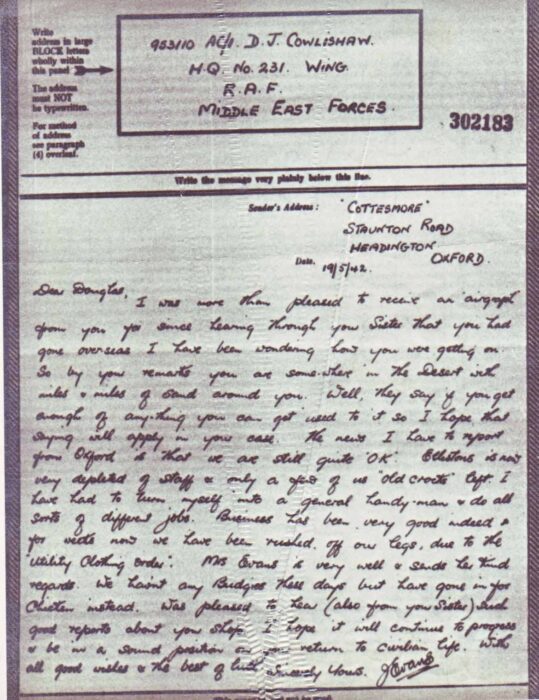 Write
address in large
BLOCK letters
wholly within
this panel
The address
must NOT
be typewritten.
For method
of address
see paragraph
(4) overleaf.
953110 AC/1. D. J. COWLISHAW.
H.Q. No. 231. WING.
R.A.F.
MIDDLE EAST FORCES.
302183
Write the message very plainly below this line.
Sender's Address: "COTTESMORE"
STAUNTON ROAD
HEADINGTON
OXFORD.
Date. 19/5/42.
Dear Douglas,
I was more than pleased to receive an airgraph
from you for since hearing through your Sister that you had
gone overseas I have been wondering how you were getting on.
So by your remarks you are some-where in the Desert with
miles & miles of Sand around you. Well, they say if you get
enough of anything you can get used to it so I hope that
saying will apply in your case. The news I have to report
from Oxford is that we are still quite "OK". Ellistons is now
very depleted of staff & only a few of us "old crocks" left. I
have had to turn myself into a general handy-man & do all
sorts of different jobs. Business has been very good indeed &
for weeks now we have been rushed off our legs, due to the
"Utility Clothing Order". Mrs Evans is very well & sends her kind
regards. We hav'nt any Budgies these days but have gone in for
Chicken instead. Was pleased to hear (also from your Sister) such
good reports about your shop. I hope it will continue to progress
& be in a sound position on your return to civilian life. With
all good wishes & the best of luck. Sincerely Yours. J Evans